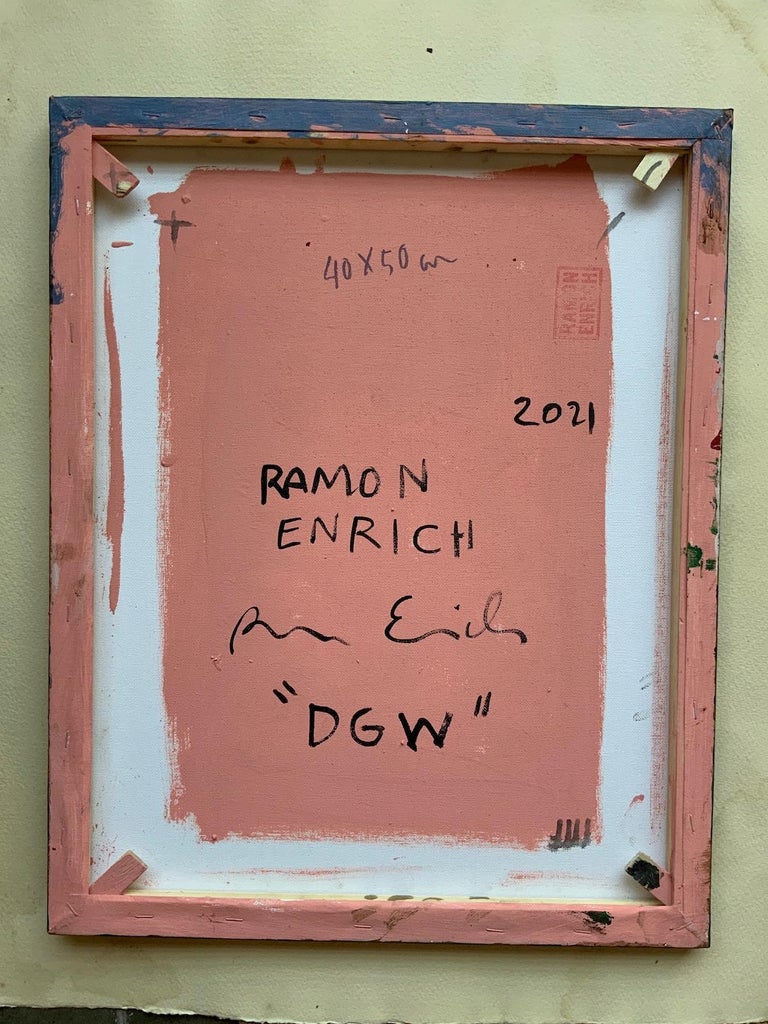 40X50 cm
RAMON
ENRICH
2021
RAMON
ENRICH
Ramon Enrich
"DGW"